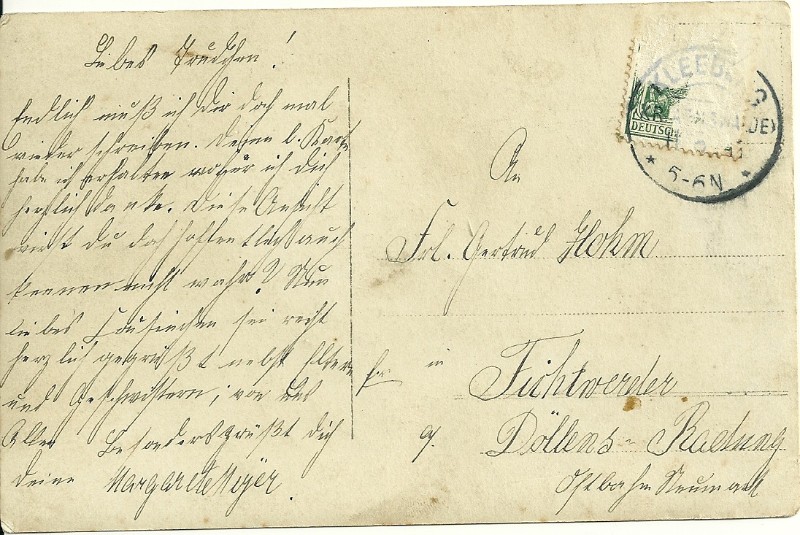 Liebes Trudchen!
Endlich muß ich dir doch mal
wieder schreiben. Deine l. Karte
habe ich erhalten wofür ich dich
herzlich danke. Diese Ansicht
wirst du doch hoffentlich auch
kennen nicht wahr? Nun
liebes Cousinchen sei recht
herzlich gegrüßt nebst Eltern
und Geschwistern, von uns
Allen Besonders grüßt dich
deine Margarete Meyer
DEUTSCH
5-6N
An
Frl. Gertrud Hohm
in
Fichtwerder
Döllens-Radung
Ostbahn Neumark